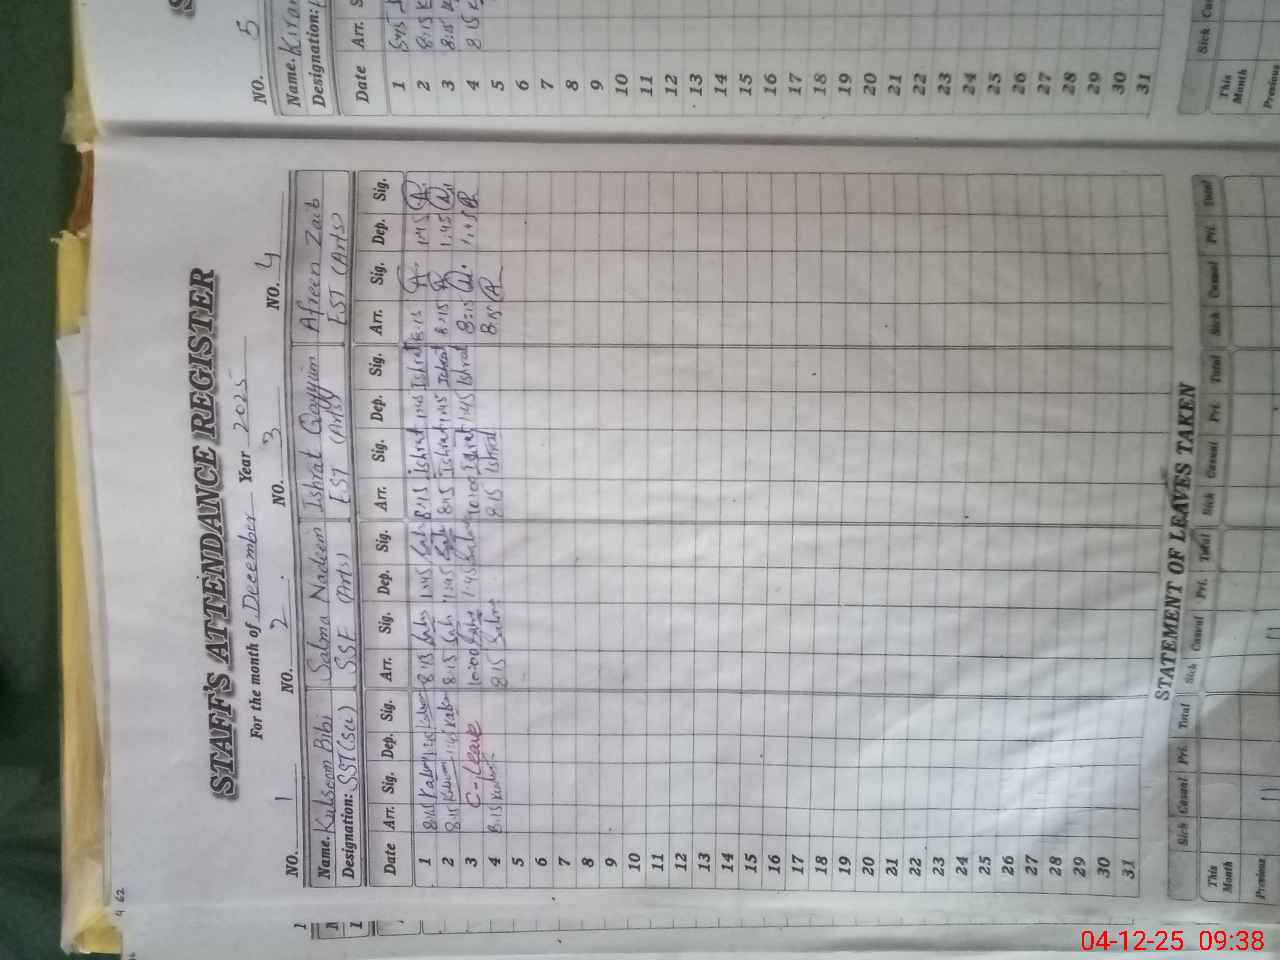 STAFF'S ATTENDANCE REGISTER
For the month of December Year 2025
NO. 1 NO. 2 NO. 3 NO. 4
Name. Kulsoom Bibi Salma Nadeem Ishrat Qayyum Afreen Zaib
Designation: SST (Sci) SSE (Arts) EST (Arts) EST (Arts)
Date Arr. Sig. Dep. Sig. Arr. Sig. Dep. Sig. Arr. Sig. Dep. Sig. Arr. Sig. Dep. Sig.
1 8:15 1:45 8:15 1:45 8:15 Ishrat 1:45 Ishrat 8:15 1:45
2 8:15 1:45 8:15 1:45 8:15 Ishrat 1:45 Ishrat 8:15 1:45
3 C-Leave 10:00 1:45 10:00 Ishrat 1:45 Ishrat 8:15 1:45
4 8:15 8:15 Salma 8:15 Ishrat 8:15
5
6
7
8
9
10
11
12
13
14
15
16
17
18
19
20
21
22
23
24
25
26
27
28
29
30
31
STATEMENT OF LEAVES TAKEN
Sick Casual Pri. Total Sick Casual Pri. Total Sick Casual Pri. Total Sick Casual Pri. Total
This Month
Previous
NO. 5
Name. Kiran
Designation:
Date Arr.
1 8:45
2 8:15
3 8:15
4 8:15
5
6
7
8
9
10
11
12
13
14
15
16
17
18
19
20
21
22
23
24
25
26
27
28
29
30
31
Sick
This Month
Previous
04-12-25 09:38